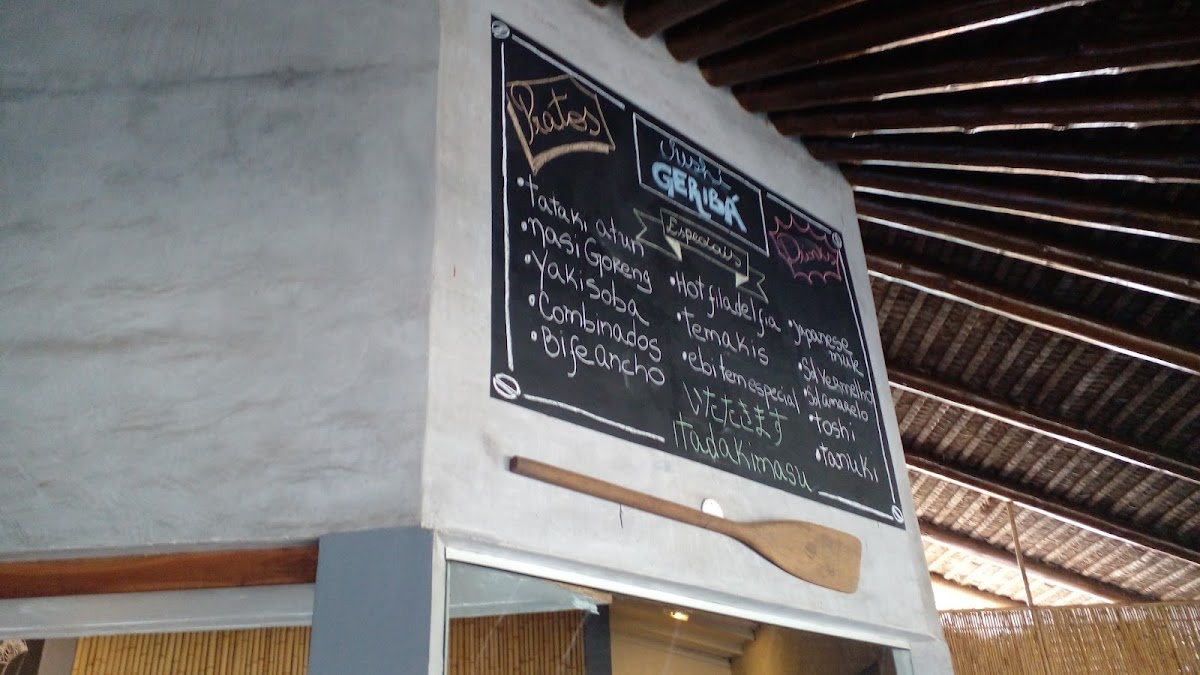 Pratos
• Tataki atun
• Nasi Goreng
• Yakisoba
• Combinados
• Bife ancho
Sushi
GERIBÁ
Especiais
• Hot filadelfia
• Temakis
• ebi tem especial
いたたきます
Itadakimasu
Drinks
• Japanese
mule
• Sol vermelho
• Sol amarelo
• toshi
• tanuki